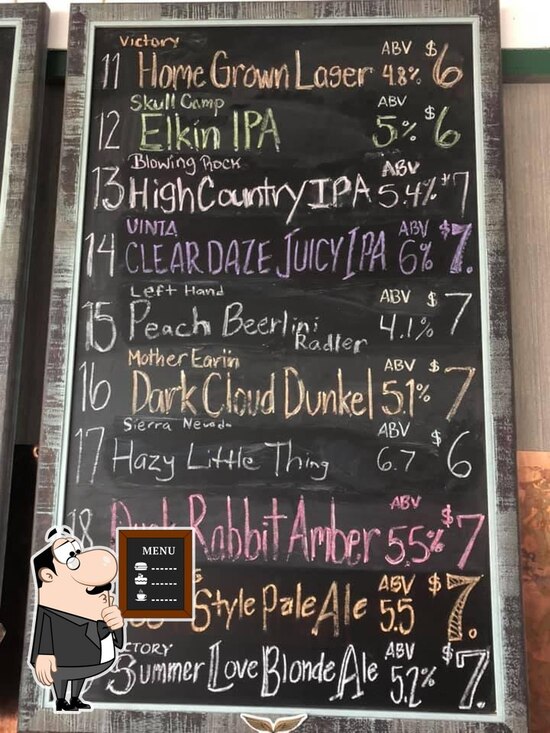 Victory
11 Home Grown Lager ABV 4.8% $6
Skull Camp
12 Elkin IPA ABV 5% $6
Blowing Rock
13 High Country IPA ABV 5.4% $7
UINTA
14 CLEAR DAZE JUICY IPA ABV 6% $7.
Left Hand
15 Peach Beerlini Radler ABV 4.1% $7
Mother Earth
16 Dark Cloud Dunkel ABV 5.1% $7
Sierra Nevada
17 Hazy Little Thing ABV 6.7 $6
Rabbit Amber ABV 5.5% $7
Style Pale Ale ABV 5.5 $7.
Summer Love Blonde Ale ABV 5.2% $7.
MENU